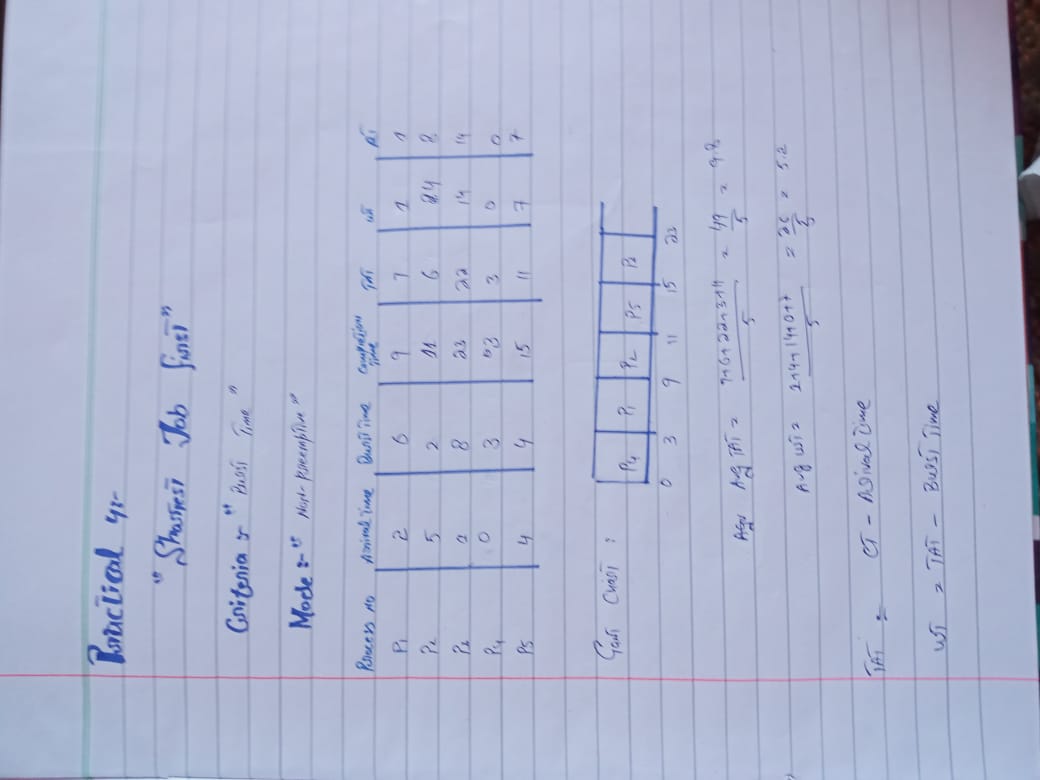 Practical 4:-
"Shortest Job first"
Criteria :- "Burst Time"
Mode :- "Non-Preemptive"
Process No Arrival Time Burst Time Completion Time TAT WT RT
P1 2 6 9 7 1 1
P2 5 2 11 6 4
P3 1 8 23 22 14 14
P4 0 3 3 3 0 0
P5 4 4 15 11 7 7
Gantt Chart :
P4 P1 P2 P5 P3
0 3 9 11 15 23
Avg TAT = 7+6+22+3+11 / 5 = 49 / 5 = 9.8
Avg WT = 1+4+14+0+7 / 5 = 26 / 5 = 5.2
TAT = CT - Arival Time
WT = TAT - Burst Time